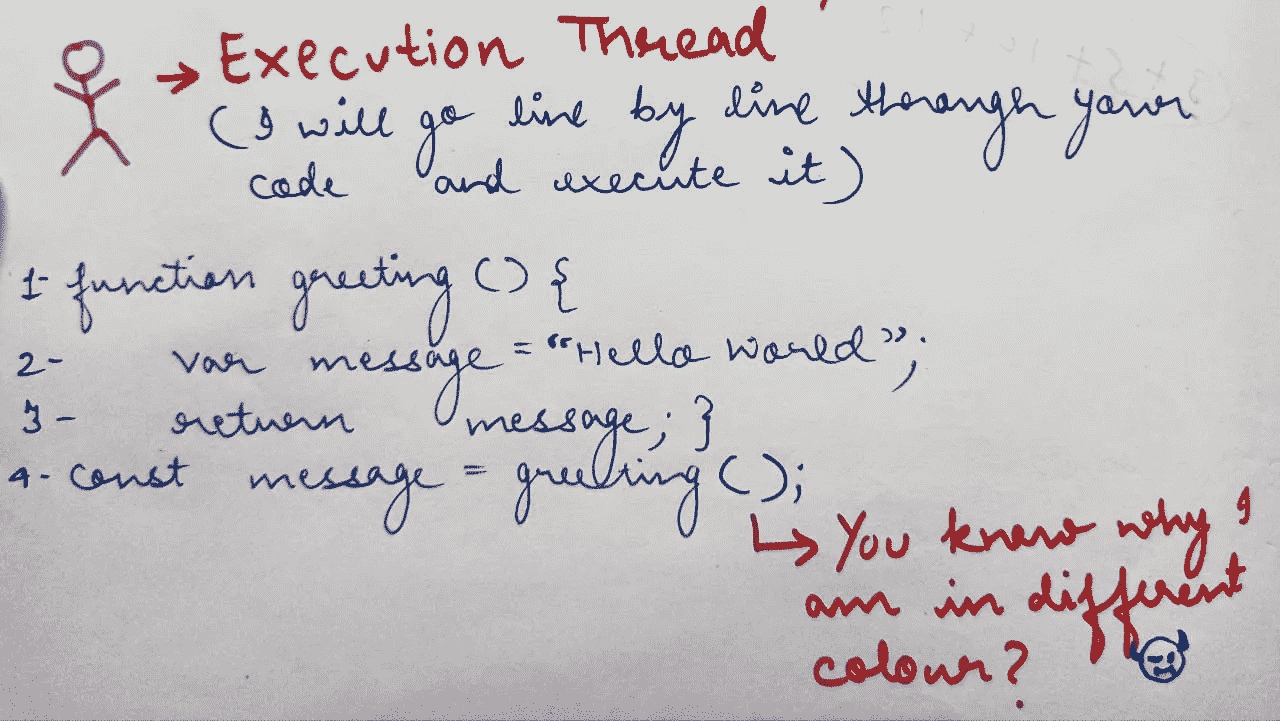 → Execution Thread
(I will go line by line through your
code and execute it)
1- function greeting () {
2- var message = “Hello World”;
3- return message; }
4- const message = greeting ();
↳ You know why I
am in different
colour?